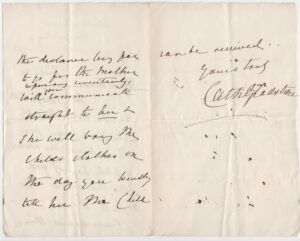 the distance
to us for the Mother
will communicate
straight to her &
she will bring the
childs clothes on
the day you kindly
tell her the Child
can be received..
Yours truly
Cath Gladstone